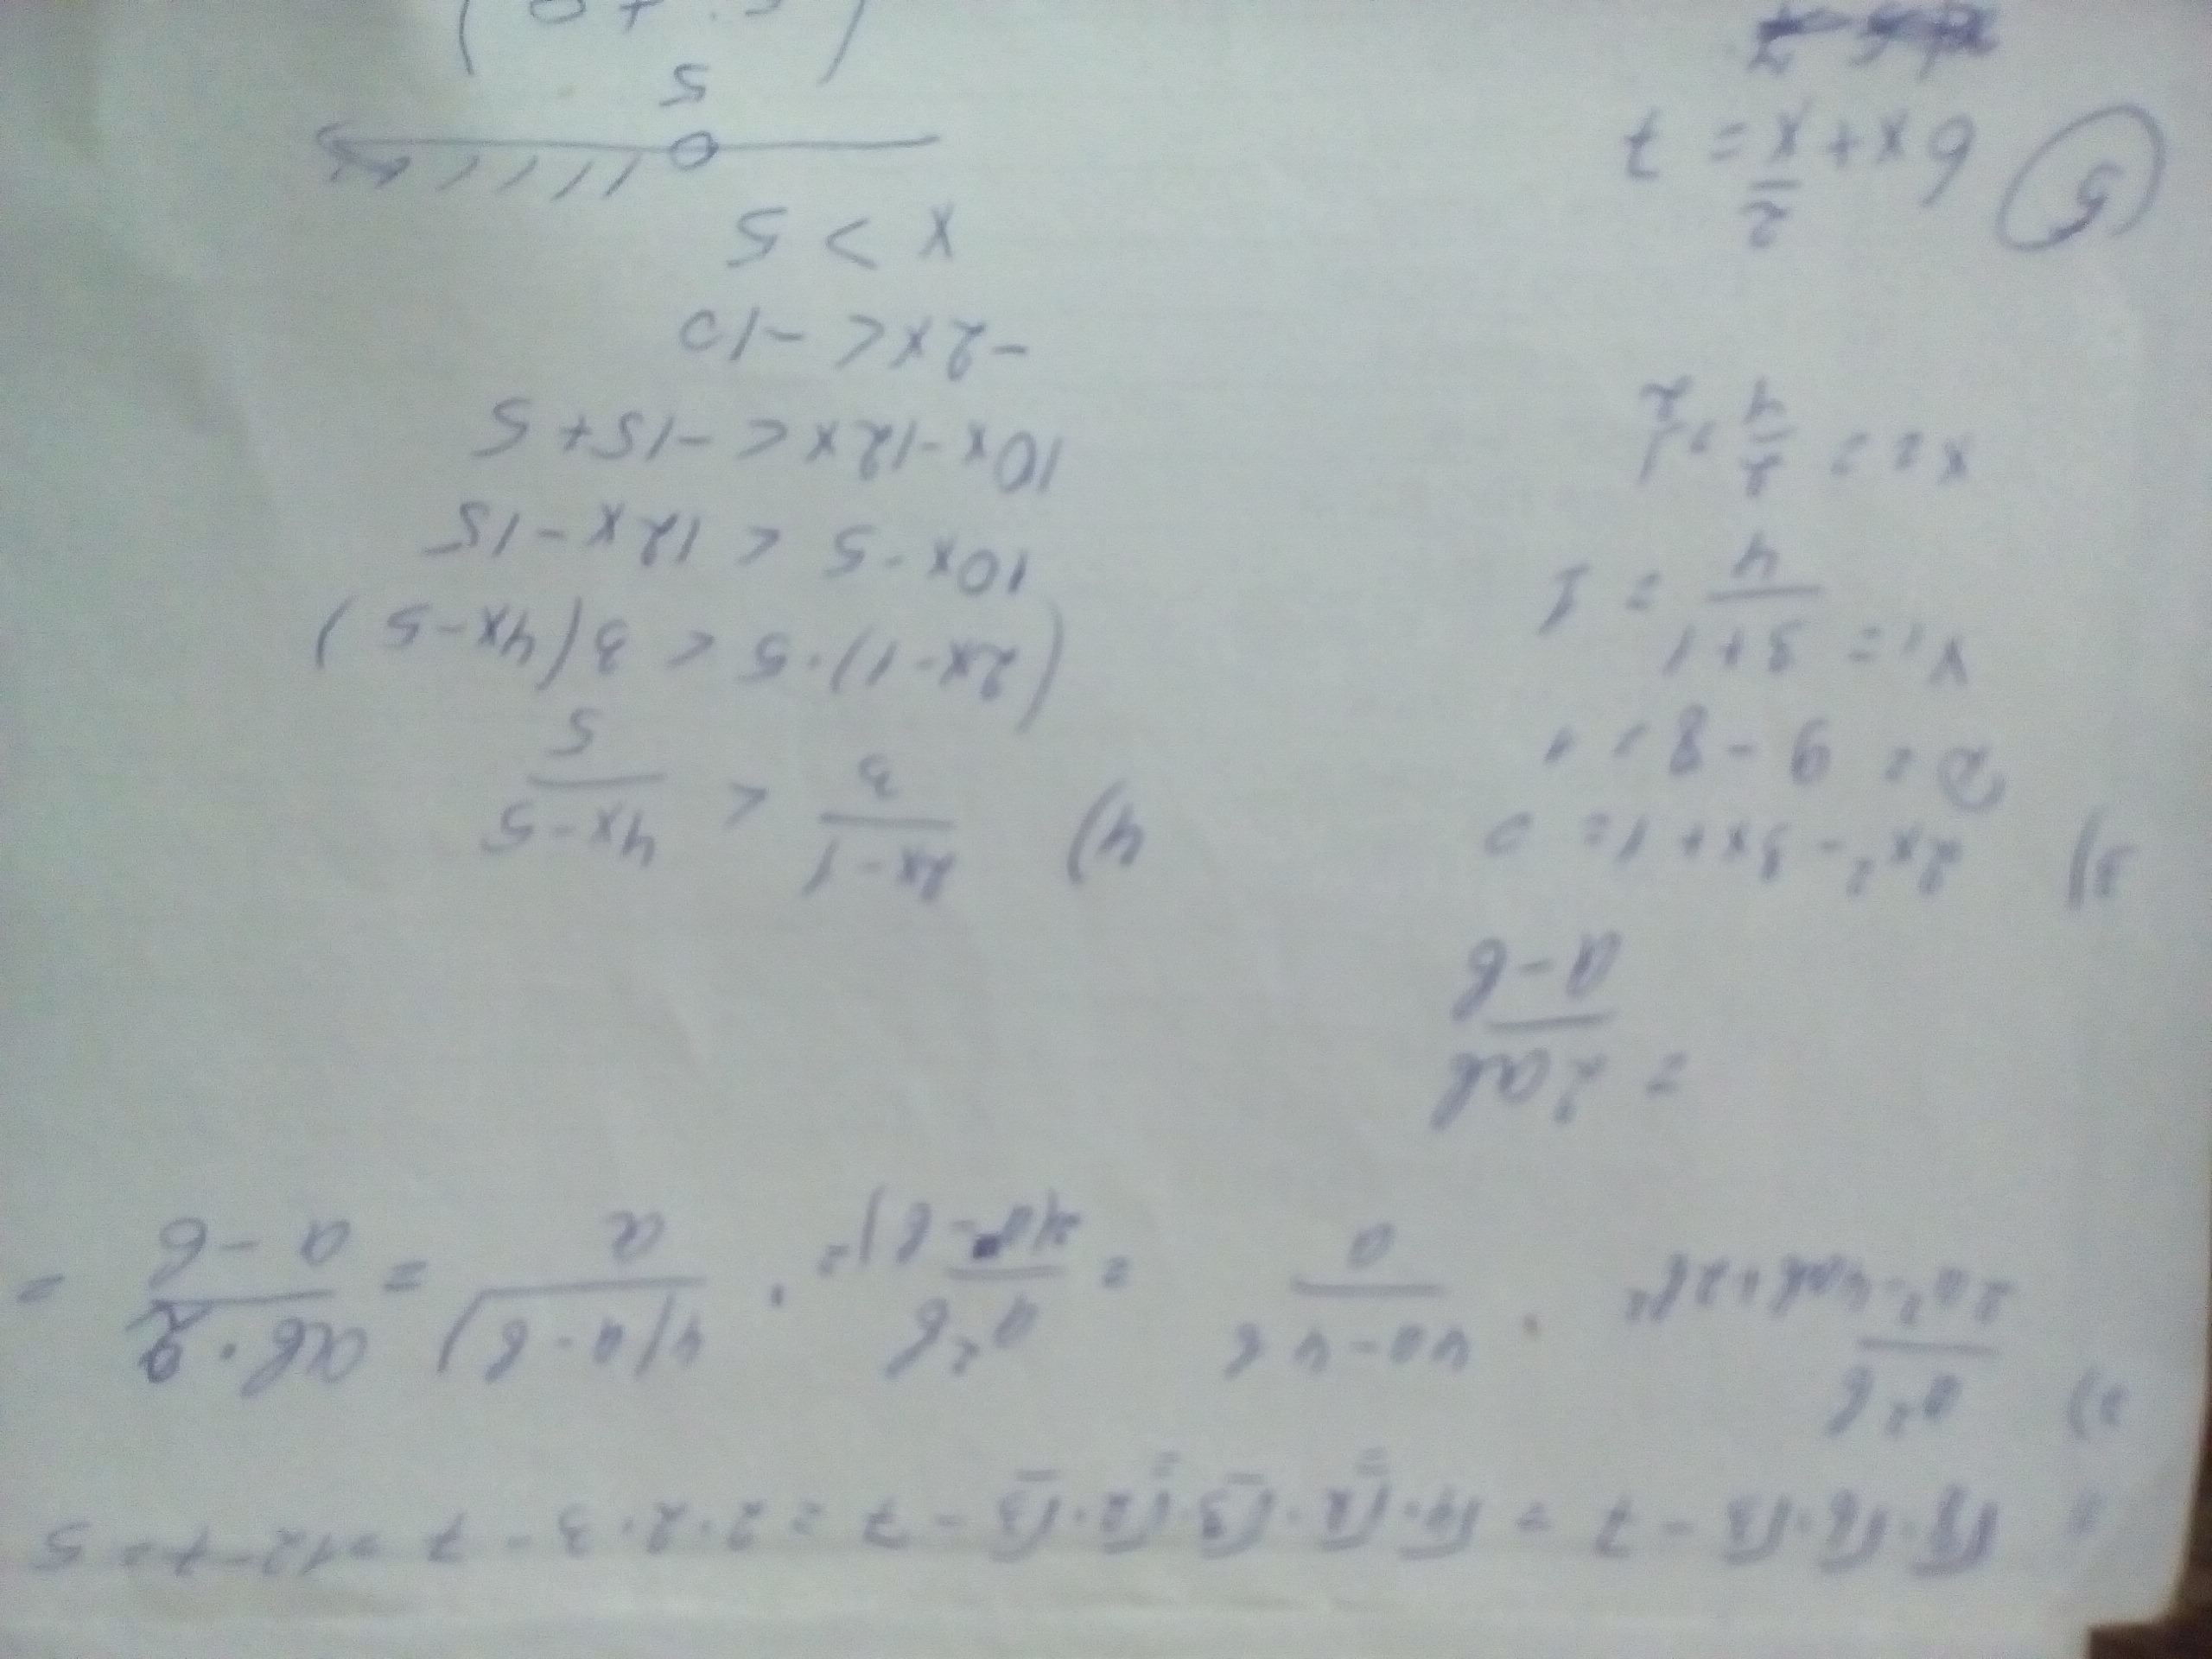 1) √8·√6·√3 - 7 = √4·√2·√3·√2·√3 - 7 = 2·2·3 - 7 = 12 - 7 = 5
2) a²b/(2a² - 4ab + 2b²) · (4a - 4b)/a = a²b/(2(a - b)²) · 4(a - b)/a = ab·2/(a - b) =
= 2ab/(a - b)
3) 2x² - 3x + 1 = 0
D = 9 - 8 = 1
x₁ = (3 + 1)/4 = 1
x₂ = 2/4 = 1/2
4) (2x - 1)/3 < (4x - 5)/5
(2x - 1)·5 < 3(4x - 5)
10x - 5 < 12x - 15
10x - 12x < -15 + 5
-2x < -10
x > 5
5
5) 6x + x/2 = 7